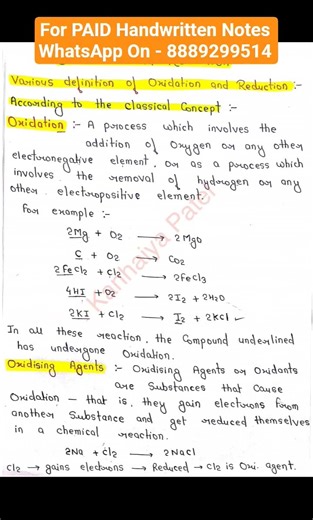 For PAID Handwritten Notes
WhatsApp On - 8889299514
Various definition of Oxidation and Reduction :-
According to the classical Concept :-
Oxidation :- A process which involves the
addition of Oxygen or any other
electronegative element, or as a process which
involves the removal of hydrogen or any
other electropositive element.
For example :-
2Mg + O2 → 2MgO
C + O2 → CO2
2FeCl2 + Cl2 → 2FeCl3
4HI + O2 → 2I2 + 2H2O
2KI + Cl2 → I2 + 2KCl
In all these reaction, the Compound underlined
has undergone Oxidation.
Oxidising Agents :- Oxidising Agents or Oxidants
are Substances that Cause
Oxidation - that is, they gain electrons from
another Substance and get reduced themselves
in a chemical reaction.
2Na + Cl2 → 2NaCl
Cl2 → gains electrons → Reduced → Cl2 is Oxi. agent.